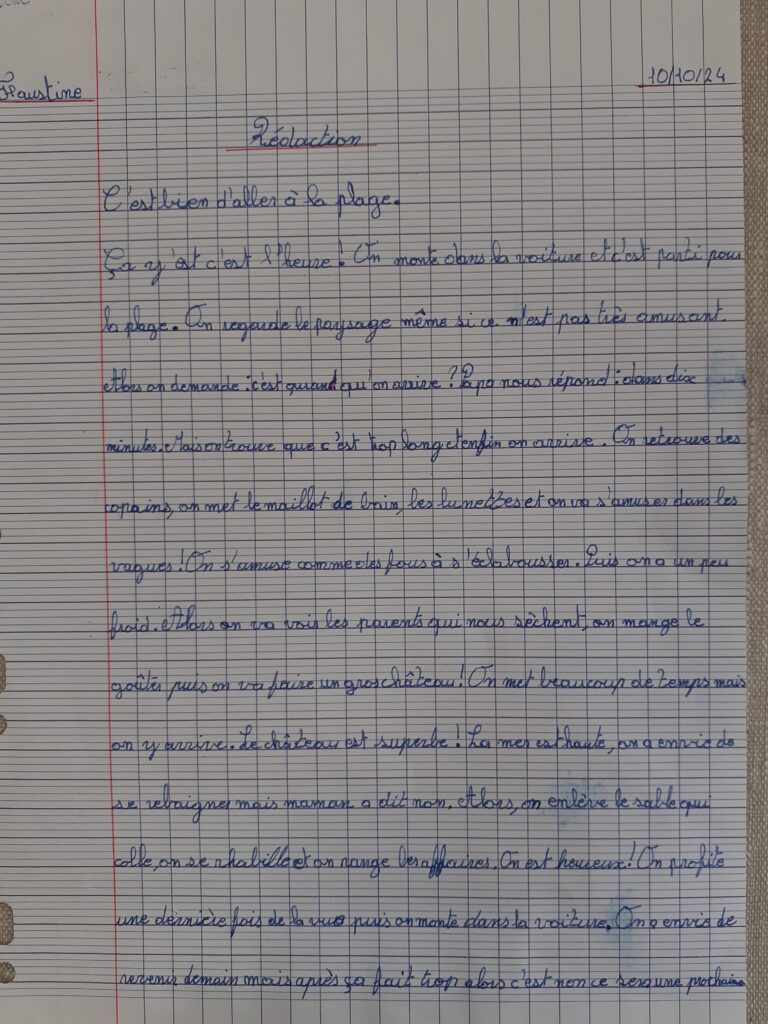 Faustine
10/10/24
Rédaction
C'est bien d'aller à la plage.
Ça y'est c'est l'heure ! On monte dans la voiture et c'est parti pour
la plage. On regarde le paysage même si ce n'est pas très amusant.
Alors on demande : c'est quand qu'on arrive ? Papa nous répond : dans dix
minutes. Mais on trouve que c'est trop long et enfin on arrive. On retrouve des
copains, on met le maillot de bain, les lunettes et on va s'amuser dans les
vagues ! On s'amuse comme des fous à s'éclabousser. Puis on a un peu
froid. Alors on va voir les parents qui nous sèchent, on mange le
goûter puis on va faire un gros château ! On met beaucoup de temps mais
on y arrive. Le château est superbe ! La mer est haute, on a envie de
se rebaigner mais maman a dit non. Alors, on enlève le sable qui
colle, on se rhabille et on range les affaires. On est heureux ! On profite
une dernière fois de la vue puis on monte dans la voiture. On a envie de
revenir demain mais après ça fait trop alors c'est non ce sera une prochaine